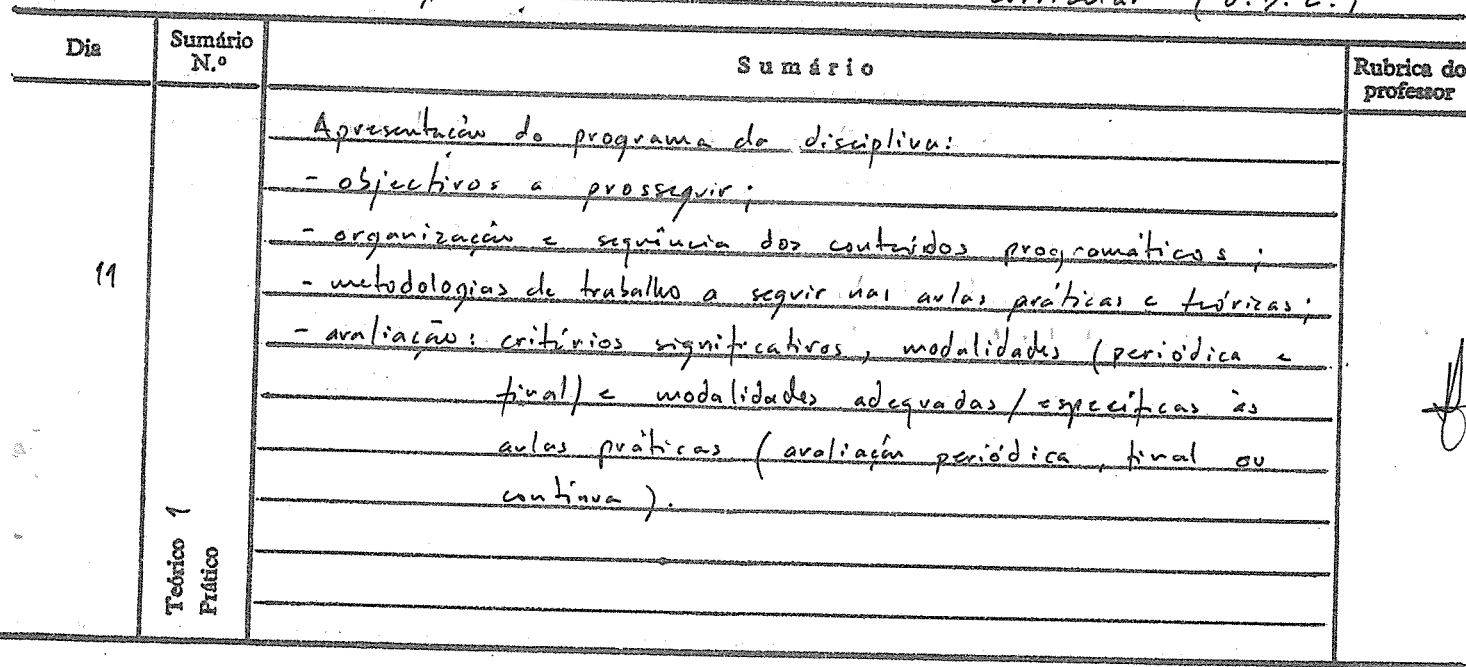 curricular (
Dia
Sumário N.º
Sumário
Rubrica do professor
11
Teórico 1
Prático
Apresentação do programa da disciplina:
- objectivos a prosseguir;
- organização e sequência dos conteúdos programáticos;
- metodologias de trabalho a seguir nas aulas práticas e teóricas;
- avaliação: critérios significativos, modalidades (periódica e
final) e modalidades adequadas / específicas às
aulas práticas (avaliação periódica, final ou
contínua).